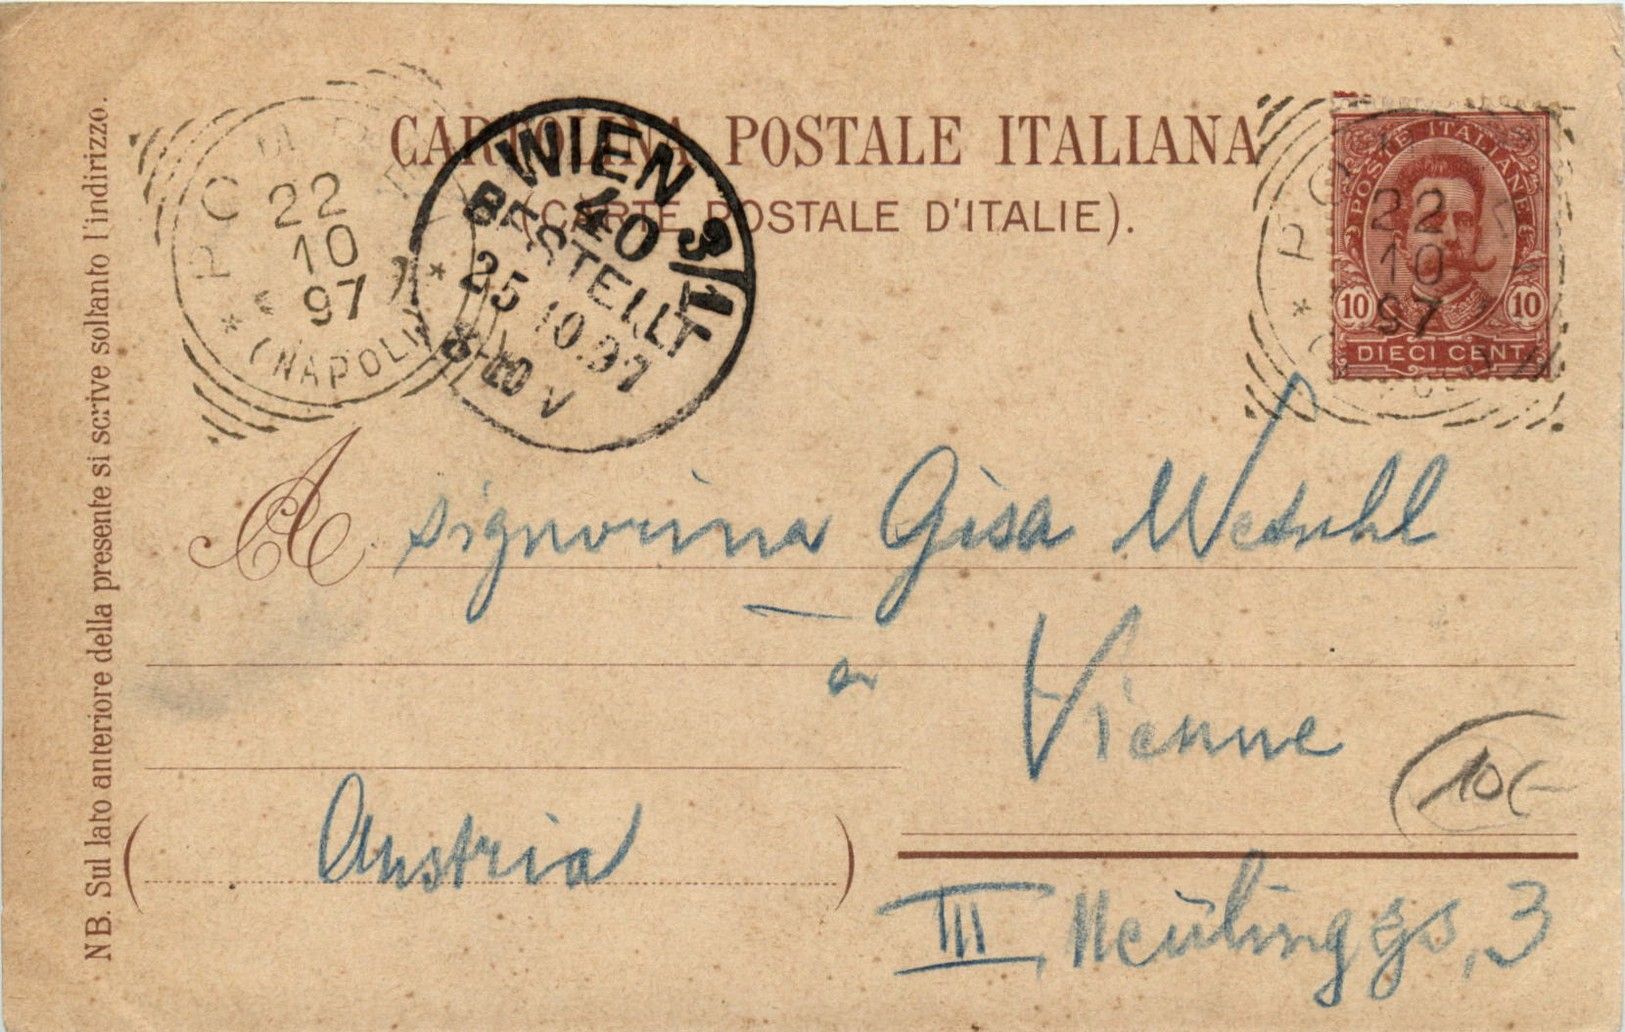 CARTOLINA POSTALE ITALIANA
(CARTE POSTALE D'ITALIE).
22
10
97
(NAPOLI)
WIEN 3/1
40
BESTELLT
25 10.97
V
POSTE ITALIANE
22
10
97
10 10
DIECI CENT.
NB. Sul lato anteriore della presente si scrive soltanto l'indirizzo.
A signorina Gisa
a Vienne
(Austria)
III, 3
10